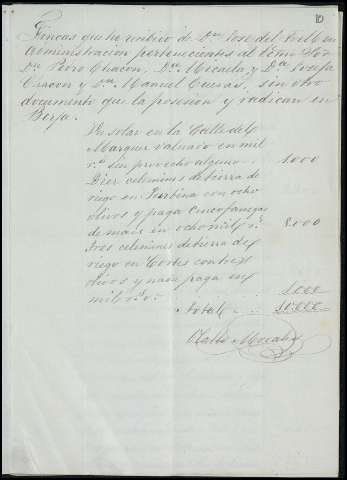 10
Fincas que he recibido de Dn. Jose del Trell en
administracion pertenecientes al Exmo Sor
Dn. Pedro Chacon, Da. Micaela, y Da. Josefa
Chacon y Dn. Manuel Cuevas, sin otro
documento que la posesion y radican en
Berja.
Un solar en la Calle del
Marques valuado en mil
rs. sin provecho alguno .. 1000
Diez celemines de tierra de
riego en con ocho
olivos y paga cinco fanegas
de maiz en ocho mil rs. 8000
Tres celemines de tierra de
riego en Cortes con tres
olivos y nada paga en
mil rs. .. 1000
Total .. 10.000